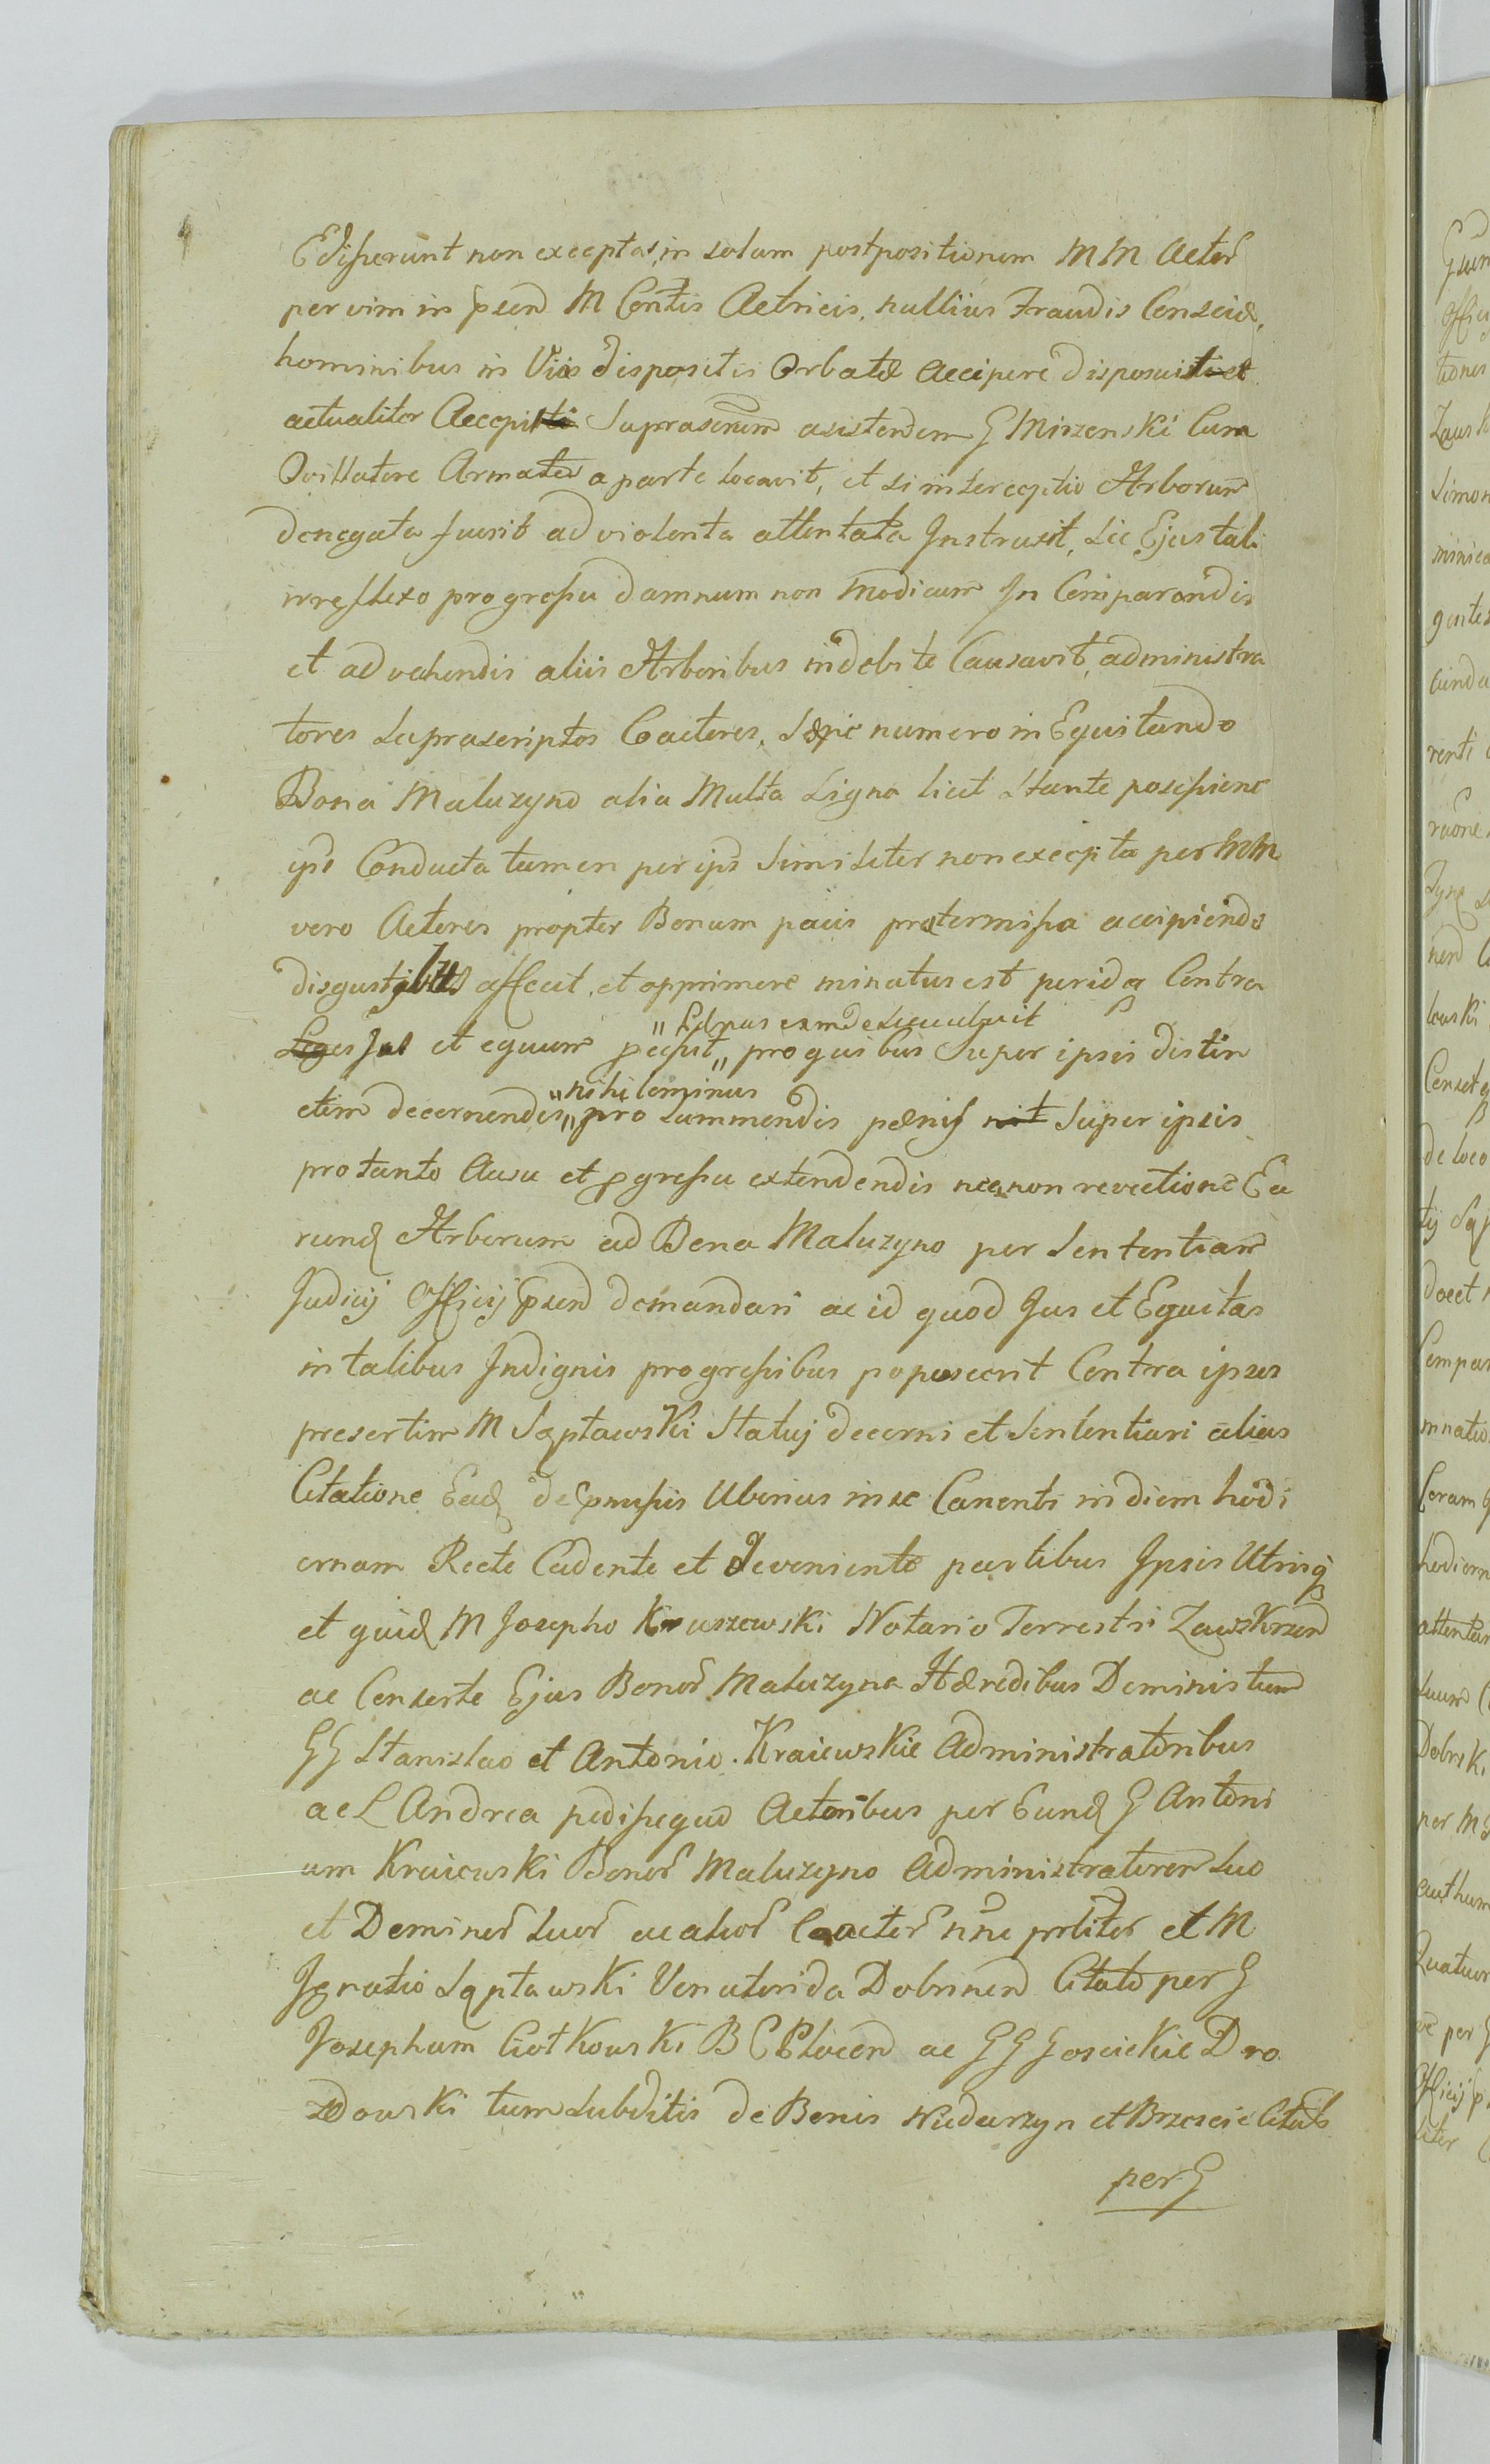 Edisserunt non exceptas, in solam postpositionem MM Actor
per vim in psend M Contis Actricis, nullius Fraudis Consciæ,
hominibus in Viis dispositis Orbatæ accipere disposuisti et
actualiter Accepisti Suprascrium assistendem G Mirzenski Cum
Armata a parte locavit, et si interceptio Arborum
denegata fuerit ad violenta attentata Instruxit, Sic Ejus tali
irreflexo progressu damnum non modicum In Comparandis
et advehendis aliis Arboribus indebite Causavit, administra
tores suprascriptos Coactores, Sæpie numero in Equitando
Bona Maluzyno alia Multa Ligna licet Stante possessione
ips Conducta tamen per ips Similiter non excepta per MM
vero Actores propter Bonum pacis prætermissa accipiendo
disgustibus affecit, et opprimere minatus est perida Contra
Leges Jus et equum
pro quibus Super ipsis distin
"nihilominus
ctim decernendis,, pro summendis pænis nit Super ipsis
pro tanto Ausu et pgressu extendendis nec non revectione Ea
rund Arborum ad Bona Maluzyno per Sententiam
Judicij Officij psend demandari ac id quod Jus et Equitas
in talibus Indignis progressibus poposcerit Contra ipsos
presertim M Sąptawski Statuj decerni et Sententiari alias
Citatione Ead de pmissis Uberius in se Canenti in diem hodi
ernam Recte Cadente et Deveniente partibus Ipsis Utrisq
et quid M Josepho Kruszewski Notario Terrestri Zawskrzen
ac Consorte Ejus Bonor Maluzyna Hæredibus Dominis tum
GG Stanislao et Antonio Kraiewskie Administratoribus
ac L Andrea pedissequo Actoribus per Eund G Antoni
um Kraiewski Bonor Maluzyno Administratorem suo
et Dominor suor ac alior Coactor nne prliter et M
Ignatio Sąptawski Venatorida Dobrinen Citato per G
Josephum Ciotkowski B C Plocen ac GG Goscickie Dro
zdowski tum subditis de Bonis Niedarzyn et Brzescie Citats
per G